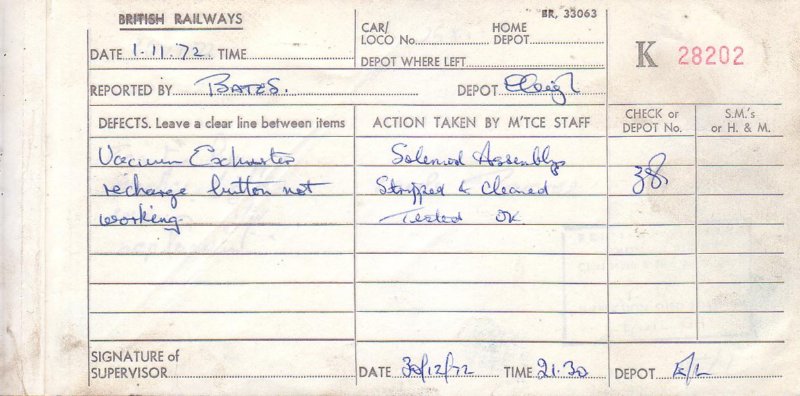 BRITISH RAILWAYS
BR. 33063
DATE 1.11.72 TIME
CAR/ LOCO No. HOME DEPOT
DEPOT WHERE LEFT
K 28202
REPORTED BY BATES. DEPOT
DEFECTS. Leave a clear line between items
ACTION TAKEN BY M'TCE STAFF
CHECK or DEPOT No.
S.M.'s or H. & M.
Vacuum Exhauster Solenoid Assembly
recharge button not Stripped & Cleaned 38
working. Tested OK
SIGNATURE of SUPERVISOR
DATE 30/12/72 TIME 21.30 DEPOT E/L